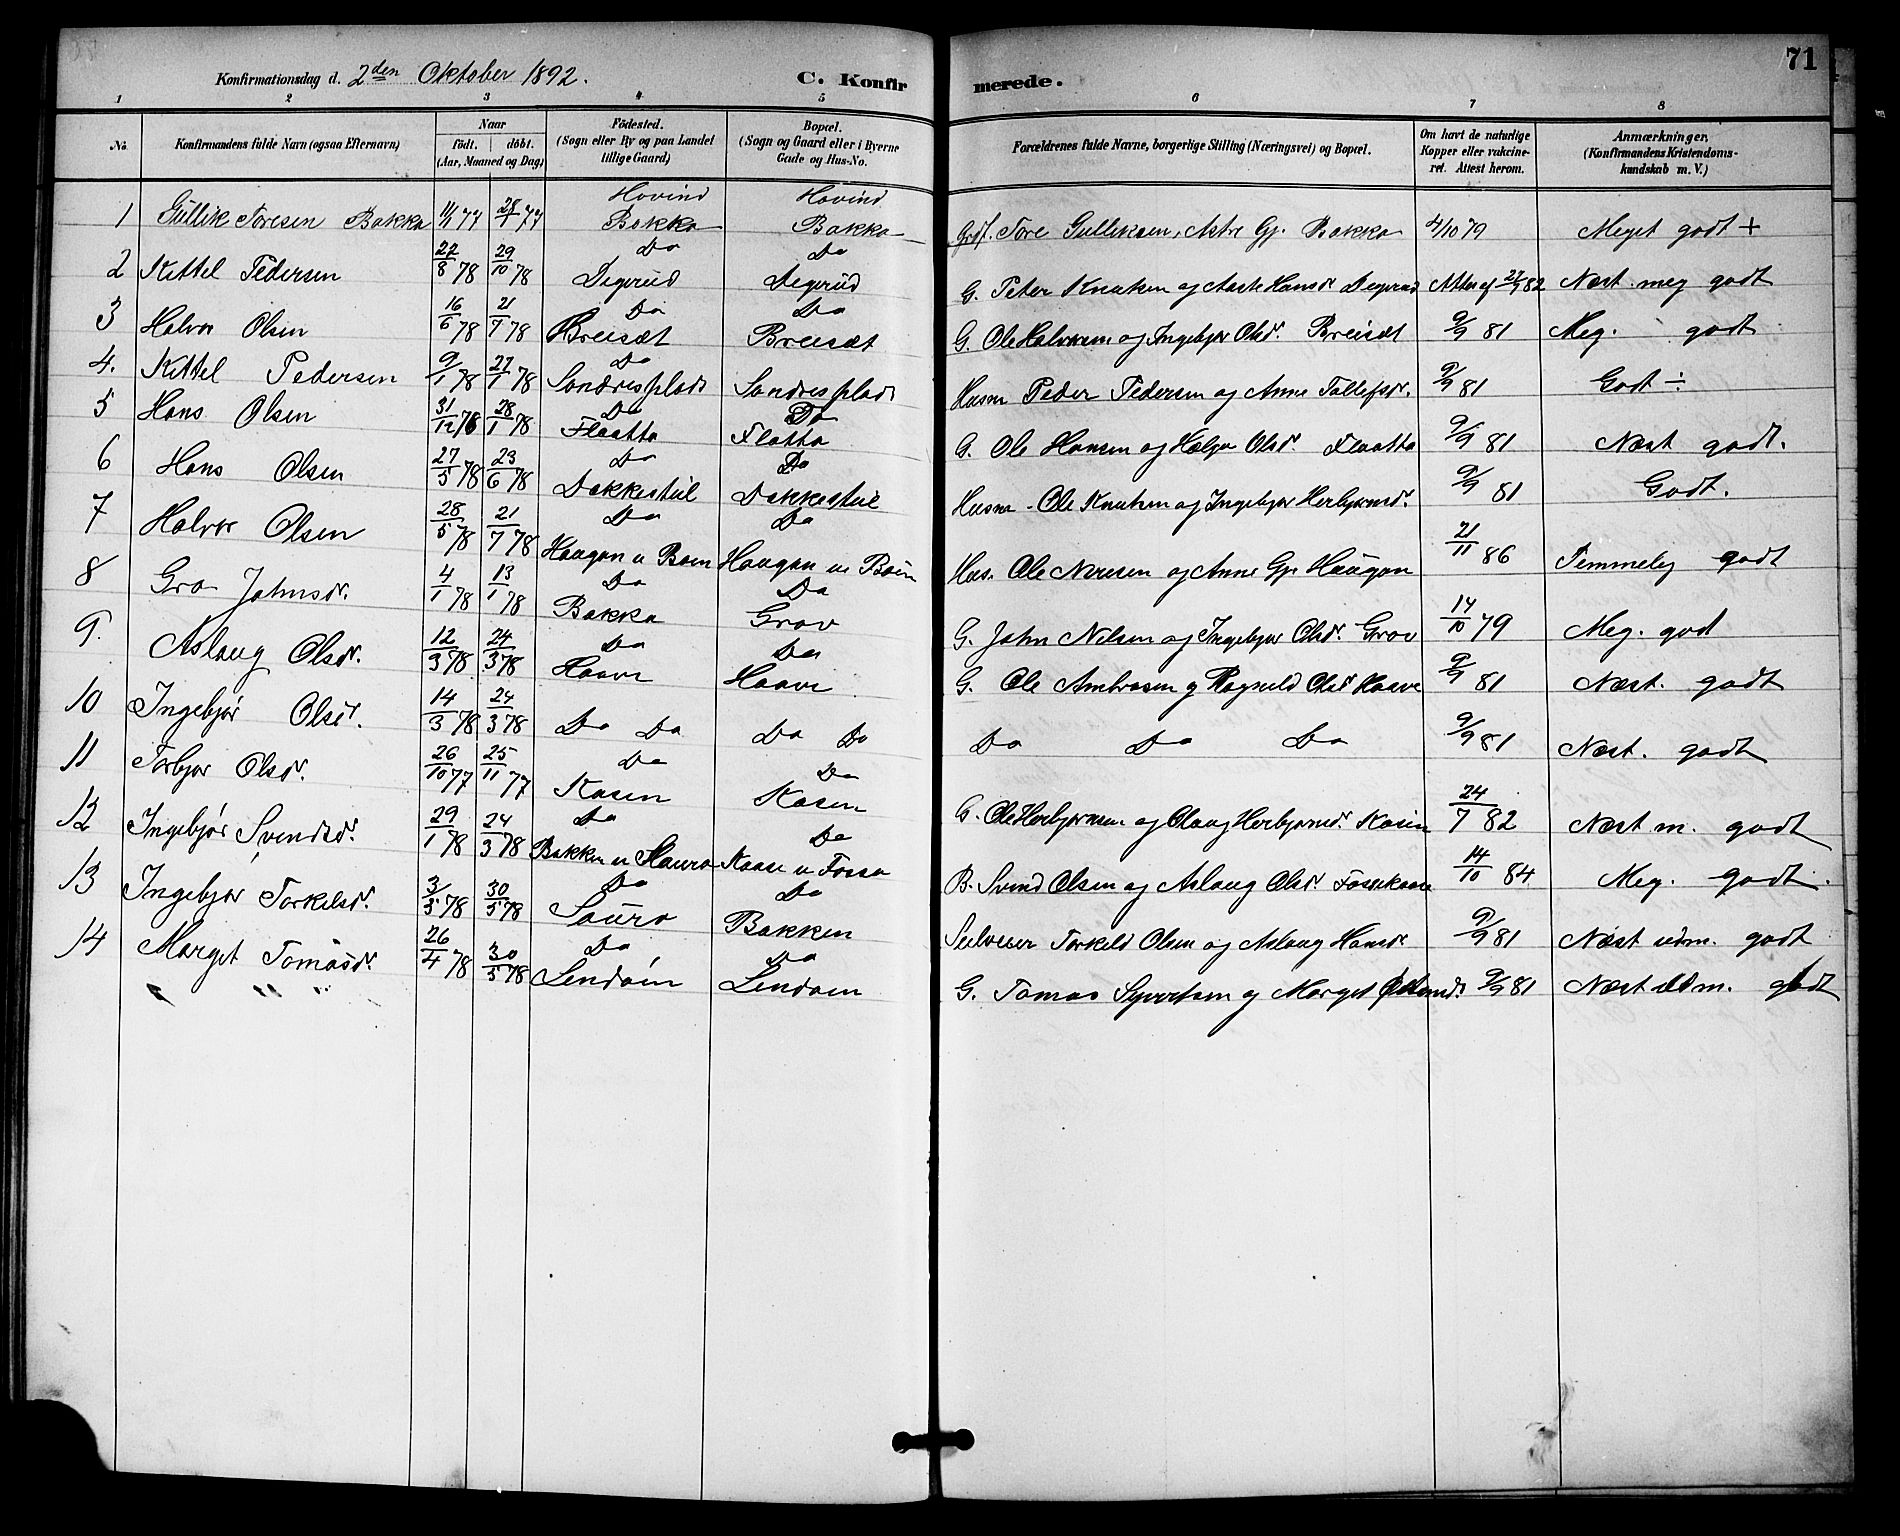 71
Konfirmationsdag d. 2den Oktober 1892. C. Konfirmerede.
1 2 3 4 5 6 7 8
No. Konfirmandens fulde Navn (ogsaa Efternavn) Naar Födt. döbt. (Aar, Maaned og Dag) Födested. (Sogn eller By og paa Landet tillige Gaard) Bopæl. (Sogn og Gaard eller i Byerne Gade og Hus-No. Forældrenes fulde Navne, borgerlige Stilling (Næringsvei) og Bopæl. Om havt de naturlige Kopper eller vakcineret. Attest herom. Anmærkninger. (Konfirmandens Kristendomskundskab m. V.)
Hovind Hovind
1 Gullik Toresen Bakka 11/1 77 28/1 77 Bakka Bakka Grdf. Tore Gulliksen, Astre Gj. Bakka 4/10 79 Meget godt +
Do Do
2 Kittel Pedersen 22/8 78 29/10 78 Degerud Degerud G. Peter Knutsen og Aaste Hansdr Degerud Attest af 27/7 82 Næst. meg godt
Do Do
3 Halvor Olsen 16/6 78 21/7 78 Breisæt Breisæt G. Ole Halvorsen og Ingebjør Olsdr. Breisæt 9/9 81 Meg. godt
Do
4. Kittel Pedersen 9/1 78 27/1 78 Sondresplads Sondresplads Husm Peder Pedersen og Anne Tollefsdr. 9/9 81 Godt ÷
Do Do
5 Hans Olsen 31/12 76 28/1 78 Flaatta Flatta G. Ole Hansen og Hælge Olsdr. Flaatta 9/9 81 Næst godt.
Do Do
6 Hans Olsen 27/5 78 23/6 78 Dakkestul Dakkestul Husm. Ole Knutsen og Ingebjør Herbjørnsdr. 9/9 81 Godt.
Do Do
7 Halvor Olsen 28/5 78 21/7 78 Haugan u Boen Haugan u Böen Hus. Ole Neresen og Anne Gj. Haugan 21/11 86 Temmelig godt
Do Do
8 Gro Johnsdr. 4/1 78 13/1 78 Bakka Grov G. John Nilsen og Ingebjør Olsdr. Grov 14/10 79 Meg. god
Do Do
9. Aslaug Olsdr. 12/3 78 24/3 78 Haave Haave G. Ole Ambrosen og Ragnild Olsdr Haave 9/9 81 Næst. godt
10 Ingebjør Olsdr. 14/3 78 24/3 78 Do Do Do Do Do Do Do 9/9 81 Næst. godt
Do Do
11 Torbjør Olsdr. 26/10 77 25/11 77 Kasen Kasen G. Ole Herbjørnsen og Olaug Herbjørnsdr. Kasin 24/7 82 Næst m. godt
Do Do
12 Ingebjør Svendsdr. 29/1 78 24/3 78 Bakken u Haura Kaase u Fossa B. Svend Olsen og Aslaug Olsdr Fossekaase 14/10 84 Meg. godt.
Do Do
13 Ingebjør Torkilsdr. 3/5 78 30/5 78 Saura Bakken Selveier Torkild Olsen og Aslaug Hansdr 9/9 81 Næst udm. godt
Do Do
14 Marget Tomasdr. 26/4 78 30/5 78 Sendöin Sendoen G. Tomas Syvertsen og Marget 9/9 81 Næst udm. godt